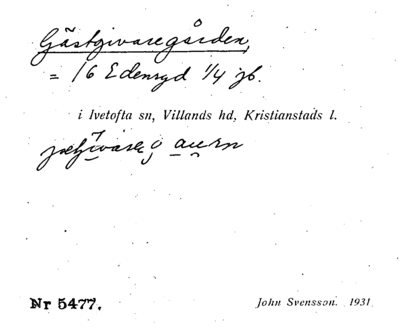 Gästgivaregården,
= 16 Edenryd 1/4 jb.
i Ivetofta sn, Villands hd, Kristianstads l.
Nr 5477.
John Svensson. 1931